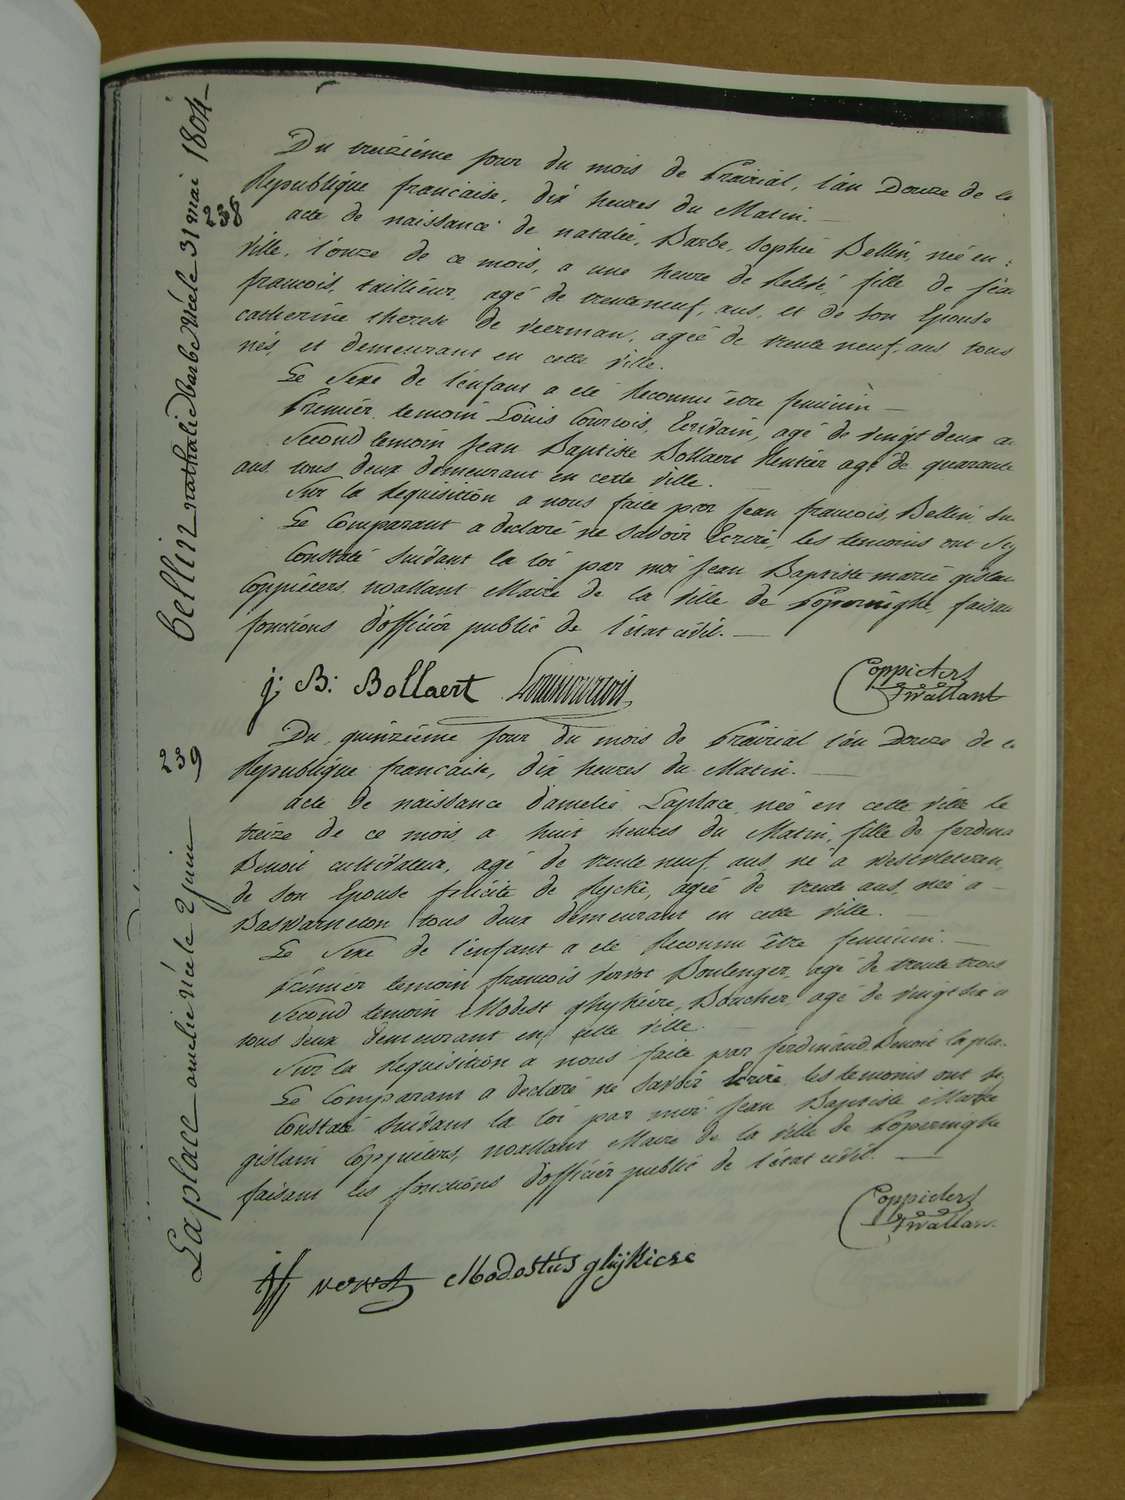 bellin nathalie barbe Née le 31 mai 1804
238
Du treizième jour du mois de Prairial, l'an Douze de la
Republique francaise, dix heures du Matin.
acte de naissance de natalie, Barbe, Sophie Bellin, née en
Ville, l'onze de ce mois, a une heure de Relevé, fille de jea
francois, taillieur, agé de trenteneuf, ans, et de son Epouse
catherine therese de veerman, ageé de trente neuf, ans, tous
nés, et demeurant en cette ville.
Le Sexe de l'enfant a eté Reconnu être feminin
Premier, temoin Louis Courtois, Ecrivain, agé de vingt deux a
Second temoin Jean Baptiste Bollaert Rentier agé de quarante
ans, tous deux demeurant en cette Ville.
Sur la Requisition a nous faite par Jean francois, Bellin, su
Le Comparant a declaré ne Savoir Ecrire, les temoins ont sig
Constaté Suivant la loi par moi Jean Baptiste marie gislai
Coppieters, wallant Maire de la Ville de Poperinghe faisan
fonctions d'officier public de l'état civil.
j: B: Bollaert Louis courtois
Coppieters
Twallant
239
La place amelie née le 2 juin
Du quinzième jour du mois de Prairial l'an Douze de la
Republique francaise, dix heures du Matin.
acte de naissance d'amelie Laplace, née en cette ville le
treize de ce mois a huit heures du Matin, fille de ferdina
Benoit cultivateur, agé de trente neuf ans, né a westvleteren,
de son Epouse felicité de Rycke, ageé de trente ans, neé a
Baswarneton tous deux demeurant en cette ville.
Le Sexe de l'enfant a eté Reconnu être feminin.
Premier temoin francois Vervst Boulenger, agé de trente trois
Second temoin Modest ghykiere, Boucher, agé de vingt six a
tous deux demeurant en cette ville.
Sur la Requisition a nous faite par ferdinand Benoit lapla
Le Comparant a declaré ne Savoir Ecrire, les temoins ont si
Constaté Suivant la loi par moi Jean Baptiste Marie
gislain Coppieters, wallant Maire de la Ville de Poperinghe
faisant les fonctions d'officier public de l'état civil.
Coppieters
Twallan
vervst Modestus ghijkiere